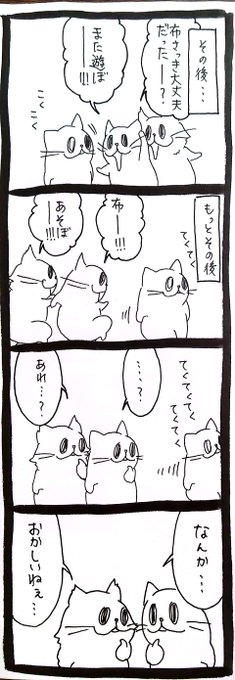 その後…
布さっき大丈夫
だったー？
また遊ぼ
ーー!!!
こくこく
もっとその後
てくてく
布ーー!!!
あそぼ
ーー!!!
てくてくてくてく
てくてく
…、？
あれ…？
なんか…
おかしいねぇ…